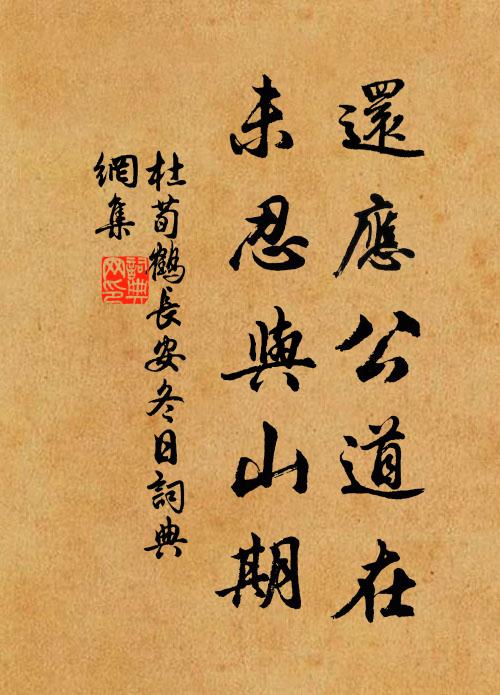 還應公道在
未忍與山期
杜荀鶴長安冬日詞典
網集
詞典
网印